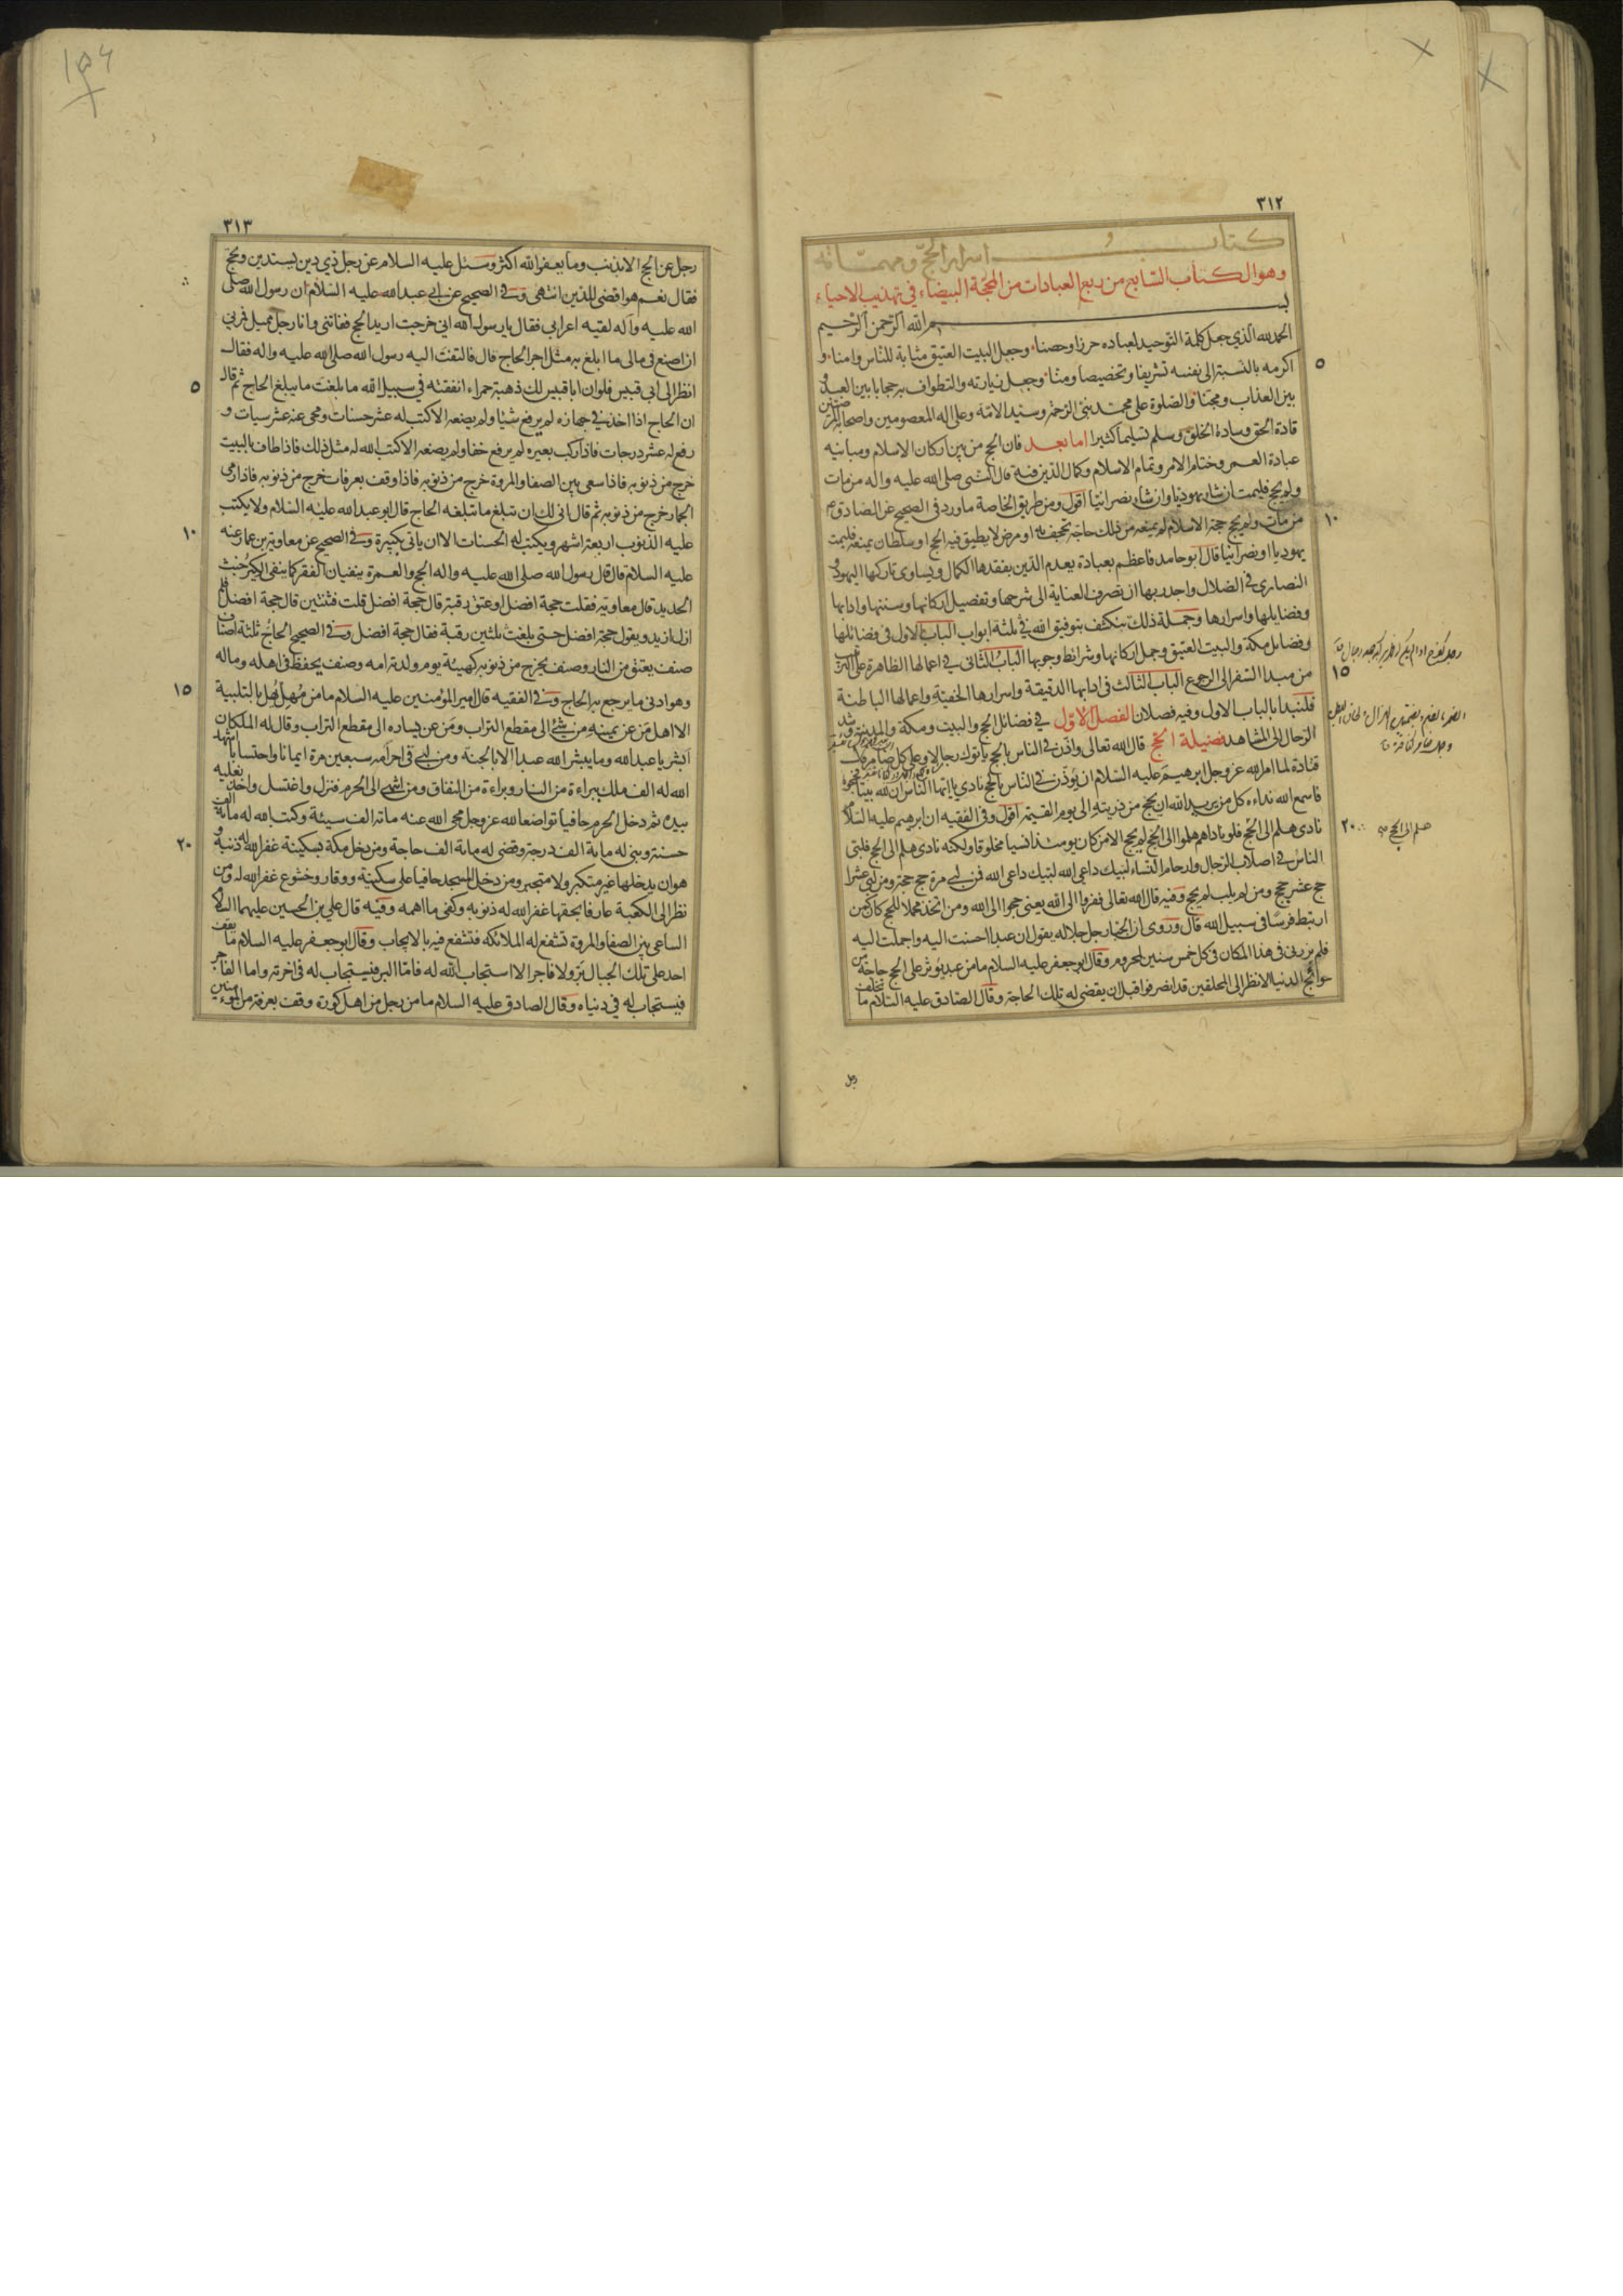 ٣١٢
كتاب اسرار الحج و مهماته
وهو الكتاب السابع من ربع العبادات من المحجة البيضاء في تهذيب الاحياء
بسم الله الرحمن الرحيم
الحمد لله الذي جعل كلمة التوحيد لعباده حرزا وحصنا وجعل البيت العتيق مثابة للناس وامنا و
اكرمه بالنسبة الى نفسه تشريفا وتخصيصا ومنا وجعل زيارته والتطواف به حجابا بين العبد و
بين العذاب ومجنا والصلوة على محمد نبي الرحمة وسيد الامة وعلى اله المعصومين واصحابه المرضيين
قادة الحق وسادة الخلق وسلم تسليما كثيرا اما بعد فان الحج من بين اركان الاسلام ومبانيه
عبادة العمر وختام الامر وتمام الاسلام وكمال الدين فيه قال النبي صلى الله عليه واله من مات
ولم يحج فليمت ان شاء يهوديا وان شاء نصرانيا اقول ومن طريق الخاصة ما ورد في الصحيح عن الصادق ع
من مات ولم يحج حجة الاسلام لم يمنعه من ذلك حاجة تجحف به او مرض لا يطيق فيه الحج او سلطان يمنعه فليمت
يهوديا او نصرانيا قال ابو حامد فاعظم بعبادة يعدم الدين بفقدها الكمال ويساوى تاركها اليهود و
النصارى في الضلال واجدر بها ان تصرف العناية الى شرحها وتفصيل اركانها وسننها وادابها
وفضايلها واسرارها وجملة ذلك ينكشف بتوفيق الله في ثلثة ابواب الباب الاول في فضائلها
وفضايل مكة والبيت العتيق وجمل اركانها وشرائط وجوبها الباب الثاني في اعمالها الظاهرة على الترتيب
من مبدا السفر الى الرجوع الباب الثالث في ادابها الدقيقة واسرارها الخفية واعمالها الباطنة
فلنبدا بالباب الاول وفيه فصلان الفصل الاول في فضائل الحج والبيت ومكة والمدينة وشد
الرحال الى المشاهد فضيلة الحج قال الله تعالى واذن في الناس بالحج ياتوك رجالا وعلى كل ضامر قال
قتادة لما امر الله عز وجل ابرهيم عليه السلام ان يؤذن في الناس بالحج نادى يا ايها الناس ان لله بيتا فحجوه
فاسمع الله نداءه كل من يريد الله ان يحج من ذريته الى يوم القيمة اقول وفي الفقيه ان ابرهيم عليه السلام
نادى هلم الى الحج فلو ناداهم هلموا الى الحج لم يحج الا من كان يومئذ انسيا مخلوقا ولكنه نادى هلم الى الحج فلبى
الناس في اصلاب الرجال وارحام النساء لبيك داعي الله لبيك داعي الله فمن لبى مرة حج حجة ومن لبى عشرا
حج عشر حجج ومن لم يلب لم يحج وفيه قال الله تعالى ففروا الى الله يعني حجوا الى الله ومن اتخذ محملا للحج كان كمن
ارتبط فرسا في سبيل الله قال وروى ان الجبار جل جلاله يقول ان عبدا احسنت اليه واجملت اليه
فلم يزرني في هذا المكان في كل خمس سنين لمحروم وقال ابو جعفر عليه السلام ما من عبد يؤثر على الحج حاجة من
حوائج الدنيا الا نظر الى المحلقين قد انصرفوا قبل ان يقضى له تلك الحاجة وقال الصادق عليه السلام ما تخلف
رجل
٥
١٠
١٥
٢٠
هلم الى الحج
٣١٣
رجل عن الحج الا بذنب وما يعفو الله اكثر وسئل عليه السلام عن رجل ذي دين يستدين ويحج
فقال نعم هو اقضى للدين انتهى وفي الصحيح عن ابي عبد الله عليه السلام ان رسول الله صلى
الله عليه وآله لقيه اعرابي فقال يا رسول الله اني خرجت اريد الحج ففاتني وانا رجل مميل فمرني
ان اصنع في مالى ما ابلغ به مثل اجر الحاج قال فالتفت اليه رسول الله صلى الله عليه واله فقال
انظر الى ابي قبيس فلو ان ابا قبيس لك ذهبة حمراء انفقته في سبيل الله ما بلغت ما يبلغ الحاج ثم قال
ان الحاج اذا اخذ في جهازه لم يرفع شيئا ولم يضعه الا كتب له عشر حسنات ومحى عنه عشر سيات و
رفع له عشر درجات فاذا ركب بعيره لم يرفع خفا ولم يضعه الا كتب الله له مثل ذلك فاذا طاف بالبيت
خرج من ذنوبه فاذا سعى بين الصفا والمروة خرج من ذنوبه فاذا وقف بعرفات خرج من ذنوبه فاذا رمى
الجمار خرج من ذنوبه ثم قال انى لك ان تبلغ ما تبلغه الحاج قال ابو عبد الله عليه السلام ولا يكتب
عليه الذنوب اربعة اشهر ويكتب له الحسنات الا ان ياتى بكبيرة وفي الصحيح عن معاوية بن عمار عنه
عليه السلام قال قال رسول الله صلى الله عليه واله الحج والعمرة ينفيان الفقر كما ينفي الكير خبث
الحديد قال معاوية فقلت حجة افضل او عتق رقبة قال حجة افضل قلت فثنتين قال حجة افضل فلم
ازل ازيد ويقول حجة افضل حتى بلغت ثلثين رقبة فقال حجة افضل وفي الصحيح الحاج ثلثة اصناف
صنف يعتق من النار وصنف يخرج من ذنوبه كهيئة يوم ولدته امه وصنف يحفظ في اهله وماله
وهو ادنى ما يرجع به الحاج وفي الفقيه قال امير المؤمنين عليه السلام ما من مهل يهل بالتلبية
الا اهل من عن يمينه من شئ الى مقطع التراب ومن عن يساره الى مقطع التراب وقال له الملكان
ابشر يا عبد الله وما يبشر الله عبدا الا بالجنة ومن لبى في احرامه سبعين مرة ايمانا واحتسابا اشهد
الله له الف ملك ببراءة من النار وبراءة من النفاق ومن انتهى الى الحرم فنزل واغتسل واخذ نعليه
بيده ثم دخل الحرم حافيا تواضعا لله عز وجل محى الله عنه مائة الف سيئة وكتب الله له مائة الف
حسنة وبنى له مائة الف درجة وقضى له مائة الف حاجة ومن دخل مكة بسكينة غفر الله له ذنبه و
هو ان يدخلها غير متكبر ولا متجبر ومن دخل المسجد حافيا على سكينة ووقار وخشوع غفر الله له ومن
نظر الى الكعبة عارفا بحقها غفر الله له ذنوبه وكفى ما اهمه وفيه قال علي بن الحسين عليهما السلام
الساعي بين الصفا والمروة تشفع له الملائكة فتشفع فيه بالايجاب وقال ابو جعفر عليه السلام ما يقف
احد على تلك الجبال بر ولا فاجر الا استجاب الله له فاما البر فيستجاب له في اخرته واما الفاجر
فيستجاب له في دنياه وقال الصادق عليه السلام ما من رجل من اهل كورة وقف بعرفة من المؤمنين
٥
١٠
١٥
٢٠